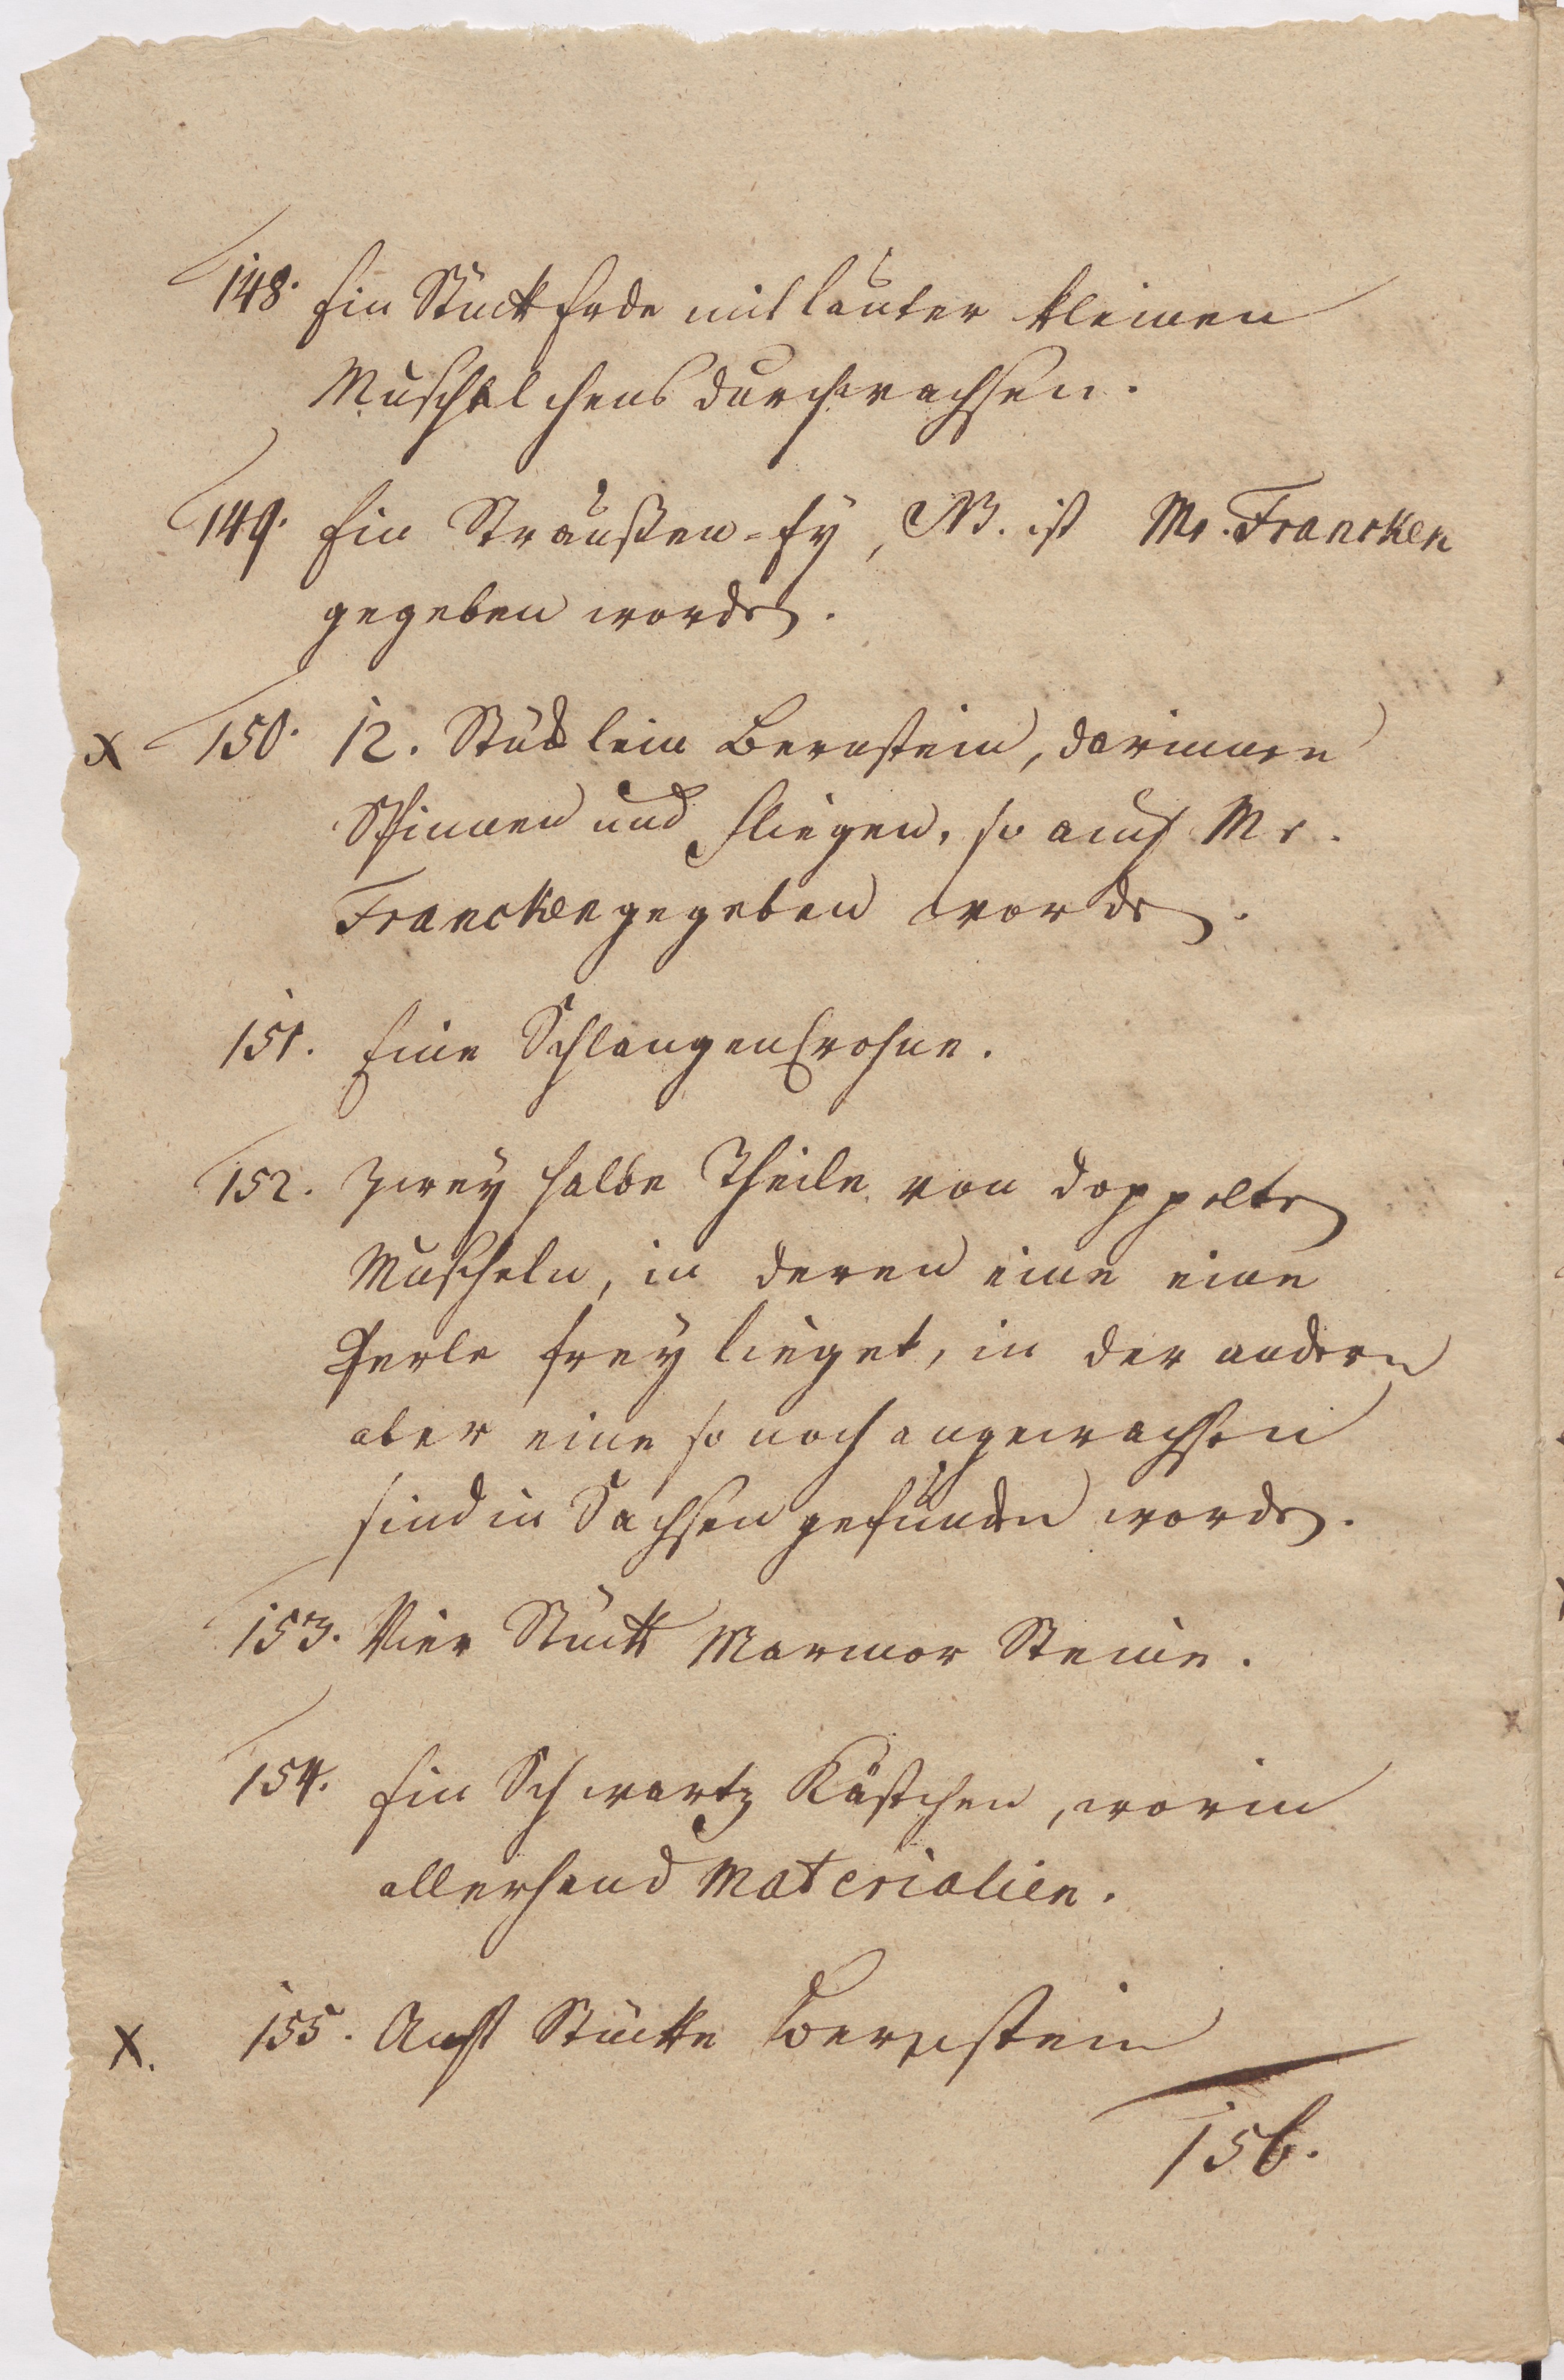 148. Ein Stück Erde mit lauter kleinen
Muschelchens durchwachsen.
149. Ein Straußen-Ey, NB. ist Mr. Francken
gegeben worden.
x 150. 12. Stücklein Bernstein, darinnen
Spinnen und Fliegen, so auch Mr.
Francken gegeben worden.
151. Eine SchlangenCrohne.
152. Zwey halbe Theile von doppelten
Muscheln, in deren eine eine
Perle frey lieget, in der andern
aber eine so noch angewachsen
sind in Sachsen gefunden worden.
153. Vier Stück Marmor Steine.
154. Ein Schwartz Kästchen, worin
allerhand Materialien.
X. 155. Acht Stücke Bernstein
156.